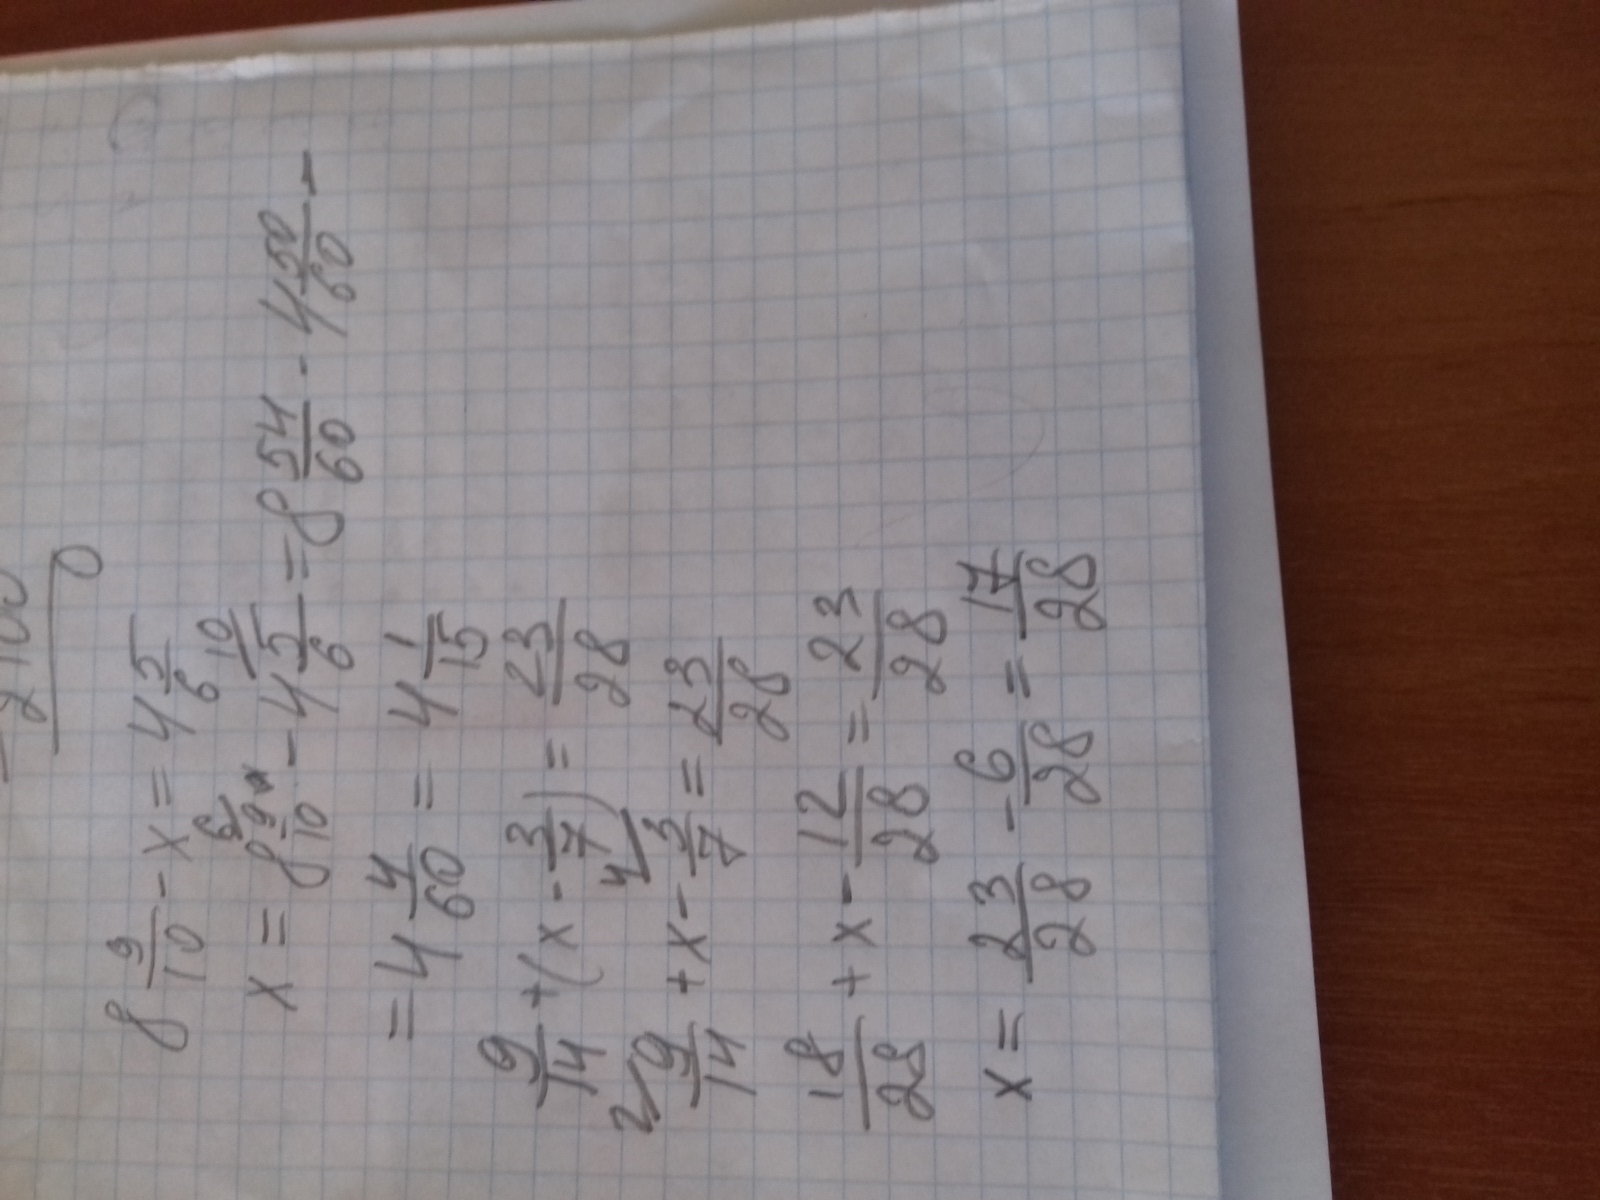 2100
0
8 9/10 - x = 4 5/6
x = 8 9/10 - 4 5/6 = 8 54/60 - 4 50/60 -
= 4 4/60 = 4 1/15
9/14 + (x - 3/7) = 23/28
9/14 + x - 3/7 = 23/28
18/28 + x - 12/28 = 23/28
x = 23/28 - 6/28 = 17/28